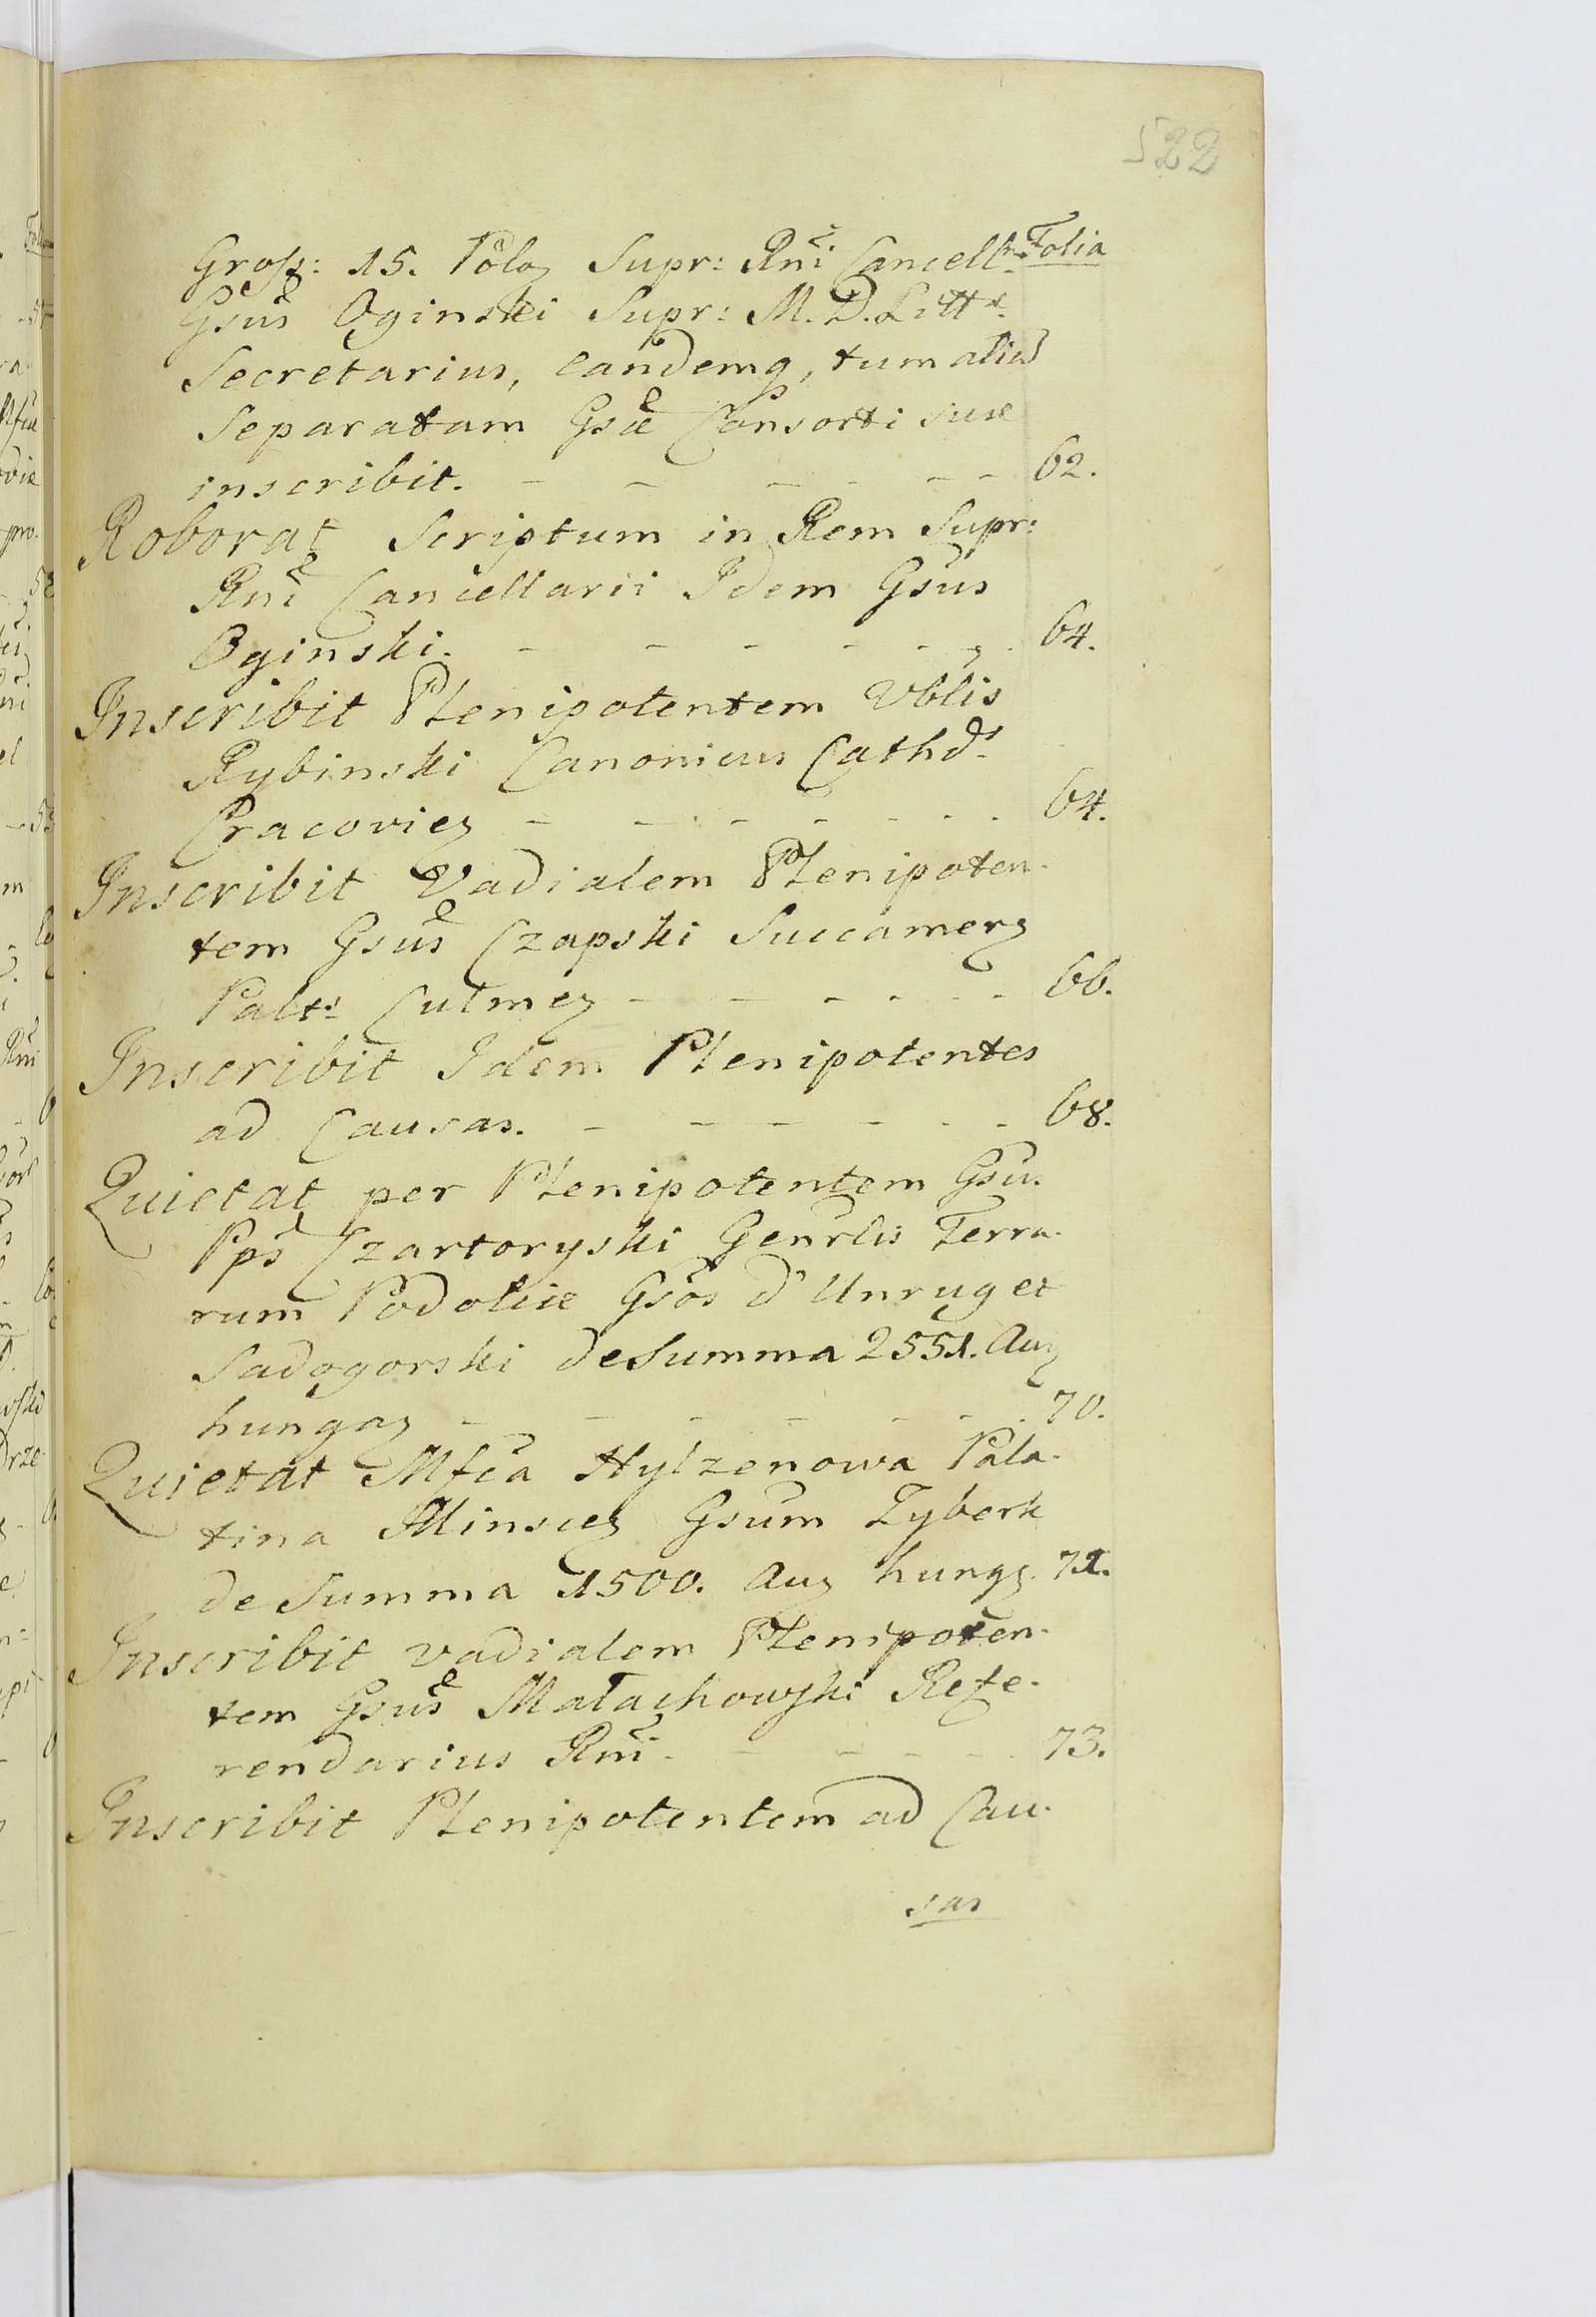 522
Folia
Gross: 15. Polo; Supr: Rni Cancellr.
Gsus Oginski Supr: M. D. Littæ
Secretarius, eandemq, tum alia
separatam Gsæ Consorti suæ
inscribit. - - - - - - 62.
Roborat Scriptum in Rem Supr:
Rni Cancellarii Idem Gsus
Oginski. - - - - - - 64.
Inscribit Plenipotentem Vblis
Rybinski Canonicus Cathds
Cracovien - - - - - - 64.
Inscribit Vadialem Plenipoten-
tem Gsus Czapski Succamerq
Palts Culmen - - - - - 66.
Inscribit Idem Plenipotentes
ad Causas. - - - - - - 68.
Quietat per Plenipotentem Gsu.
Pps Czartoryski Genrlis Terra-
rum Podoliæ Gsos d'Unrug et
Sadogorski de Summa 2551. Auq
hungaq - - - - - - 70.
Quietat Mfca Hylzenowa Pala-
tina Minscen Gsum Zyberk
de Summa 1500. Auq hungq. 71.
Inscribit vadialem Plenipoten-
tem Gsus Małachowski Refe-
rendarius Rni - - - - 73.
Inscribit Plenipotentem ad Cau-
sas